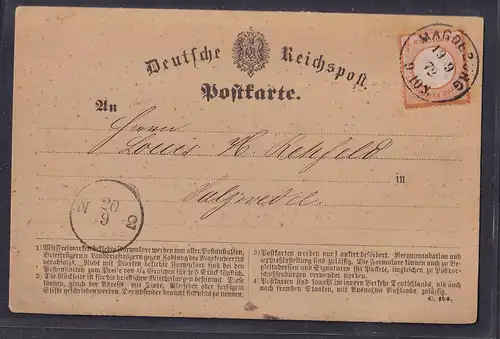 Deutsche Reichspost.
Postkarte.
MAGDEBURG
19 9
72
An
Herrn
Louis H. Rehfeld
in
Salzwedel.
N 20 2
9
1) Mit Freimarken beklebte Formulare werden von allen Postanstalten,
Briefträgern u. Landbriefträgern gegen Zahlung des Markenwerthes
verabfolgt. Nicht mit Marken beklebte Formulare sind bei den
Postanstalten zum Preise von ¼ Groschen für je 5 Stück käuflich.
2) Die Rückseite ist für die brieflichen Mittheilungen bestimmt. Diese
können, gleich der Adresse, mit Tinte, Bleifeder oder farbigem
Stifte geschrieben werden. Der Absender braucht sich nicht zu nennen.
3) Postkarten werden nur frankirt befördert. Recommandation und
Expreßbestellung sind zulässig. Die Formulare können auch zu Be-
gleitadressen und Signaturen für Packete, imgleichen zu Postvor-
schußsendungen verwendet werden.
4) Postkarten sind sowohl im innern Verkehr Deutschlands, als auch
nach fremden Staaten, mit Ausnahme Rußlands, zulässig.
C. 154.